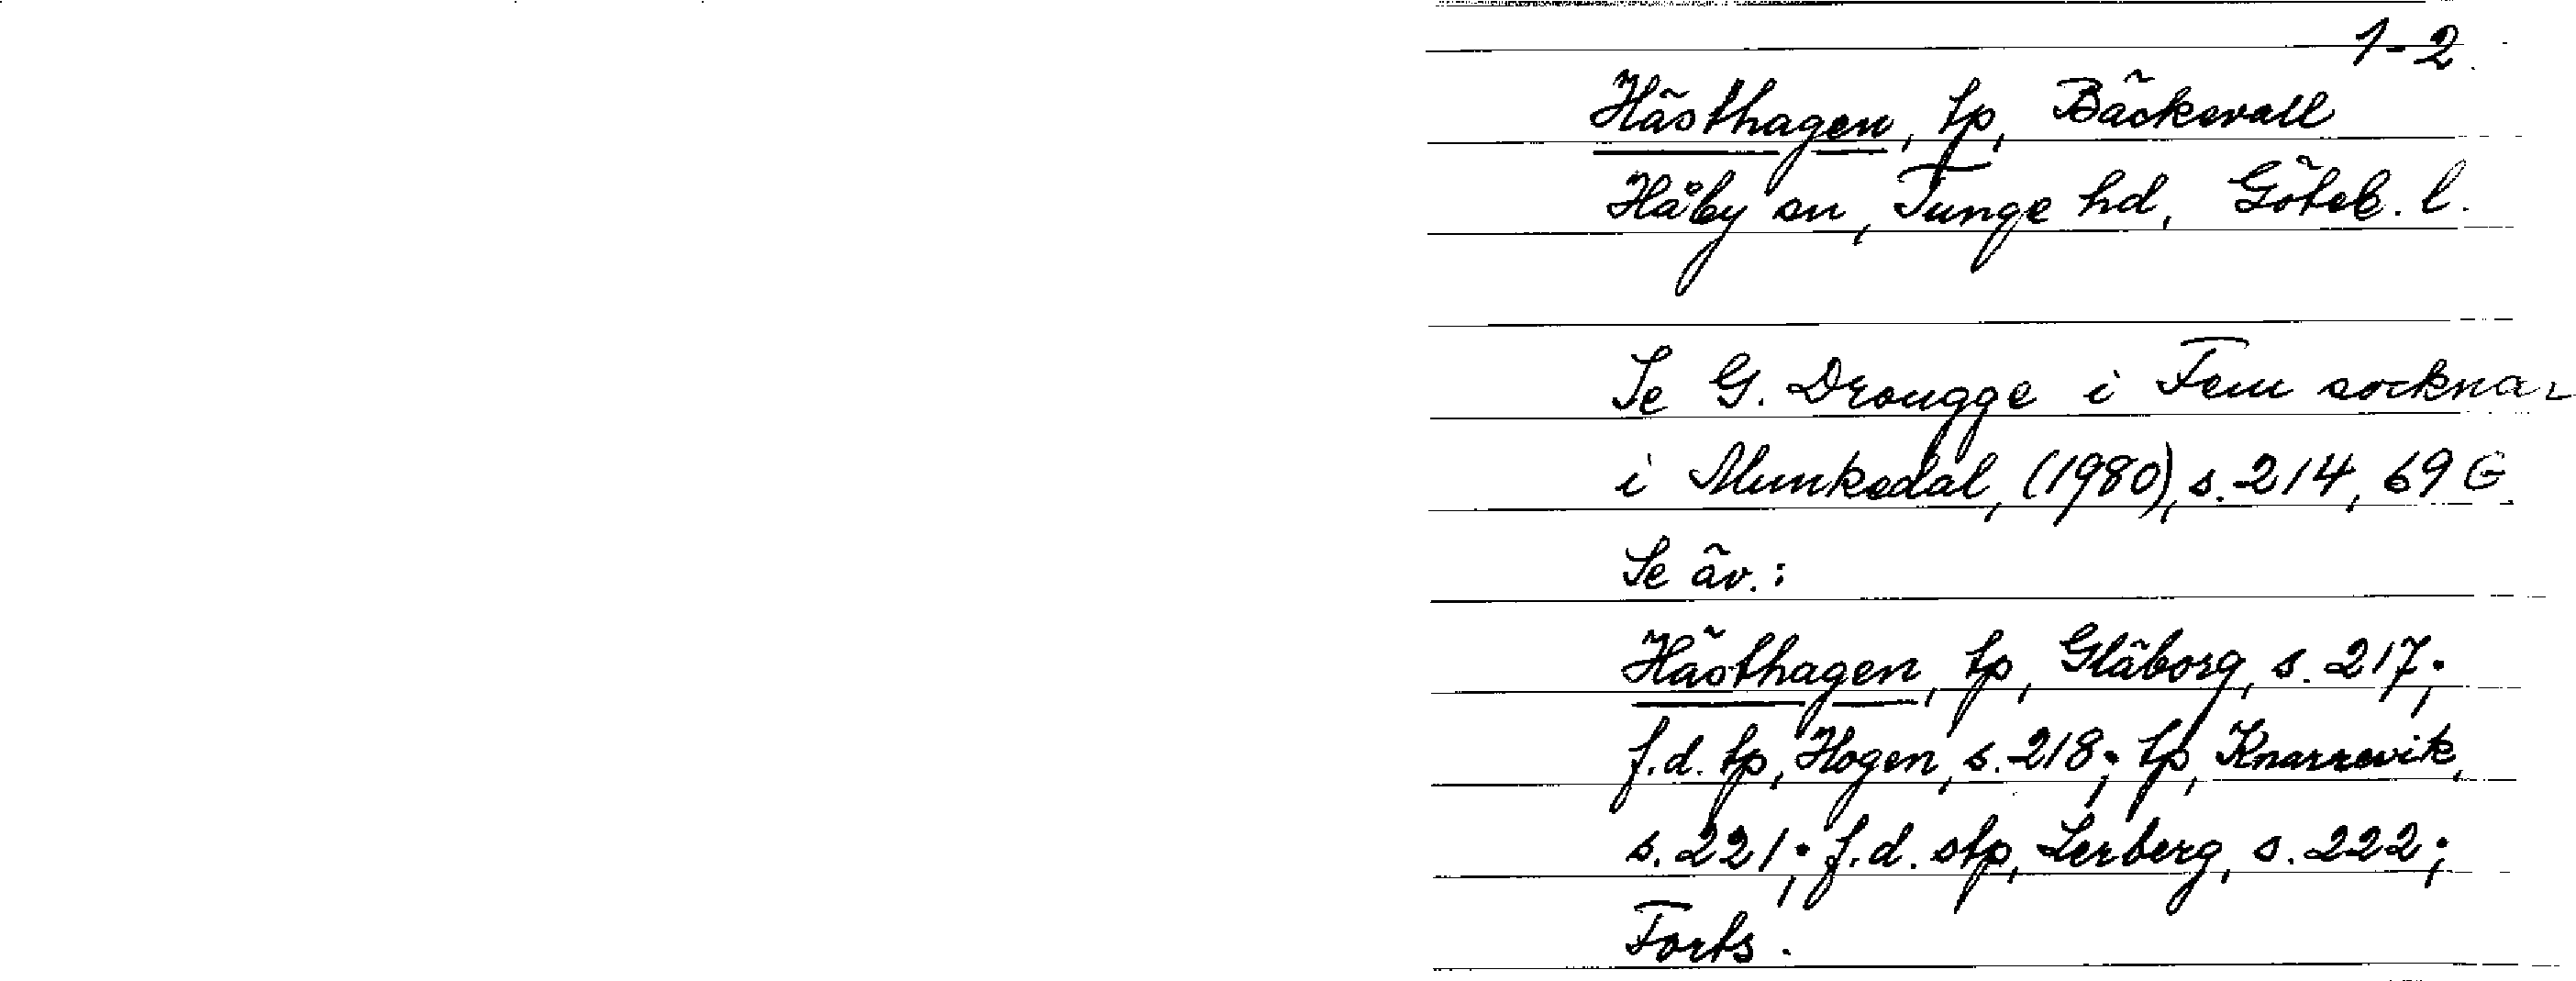 1-2.
Hästhagen, tp, Bäckevall
Håby sn, Tunge hd, Göteb. l.
Se G. Drougge i Fem socknar
i Munkedal, (1980), s. 214, 69 G.
Se äv.:
Hästhagen, tp, Gläborg, s. 217;
f.d. tp, Hogen, s. 218; tp, Knarrevik,
s. 221; f.d. stp, Lerberg, s. 222;
Forts.